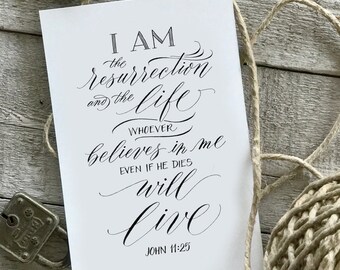 I AM
the
resurrection
and the life
WHOEVER
believes in me
EVEN IF HE DIES
will
live
JOHN 11:25